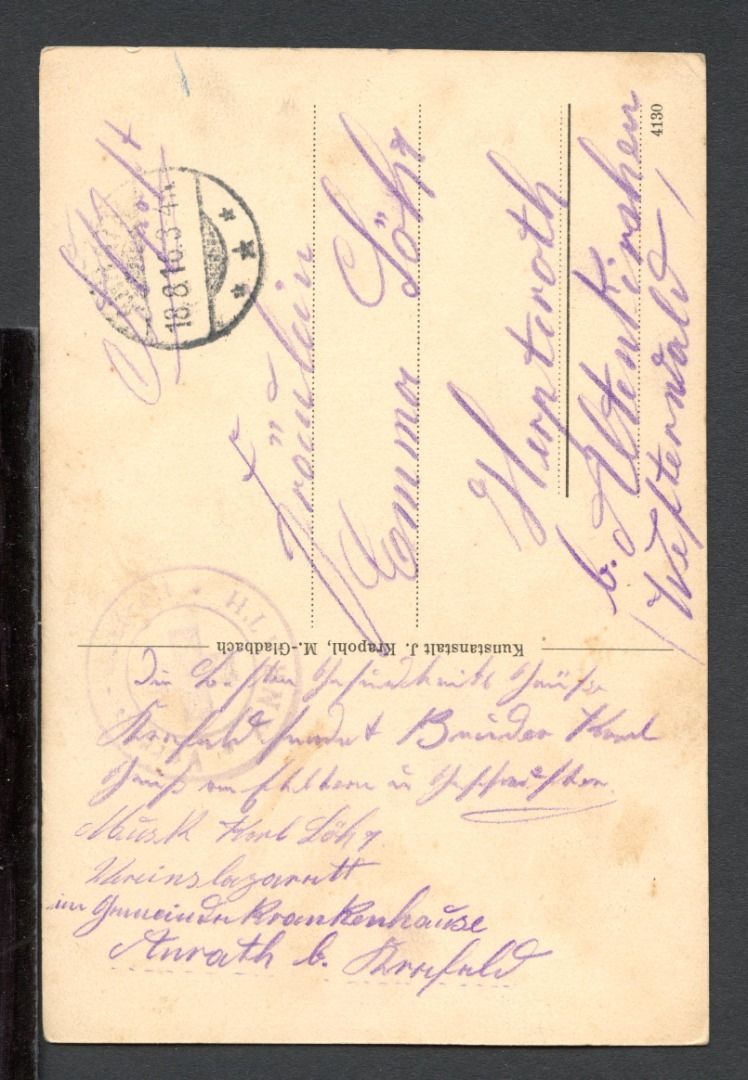 Feldpost
18.8.16.3-4N.
Fräulein
Emma Löhr
Herpteroth
b. Altenkirchen
(Westerwald)
4130
Kunstanstalt J. Krapohl, M.-Gladbach
Die besten Gesundheits Grüße
Krefeld sendet Bruder Karl
Gruß an Eltern u Geschwister.
Musk Karl Löhr.
Vereinslazarett
im Gemeindekrankenhause
Anrath b. Krefeld